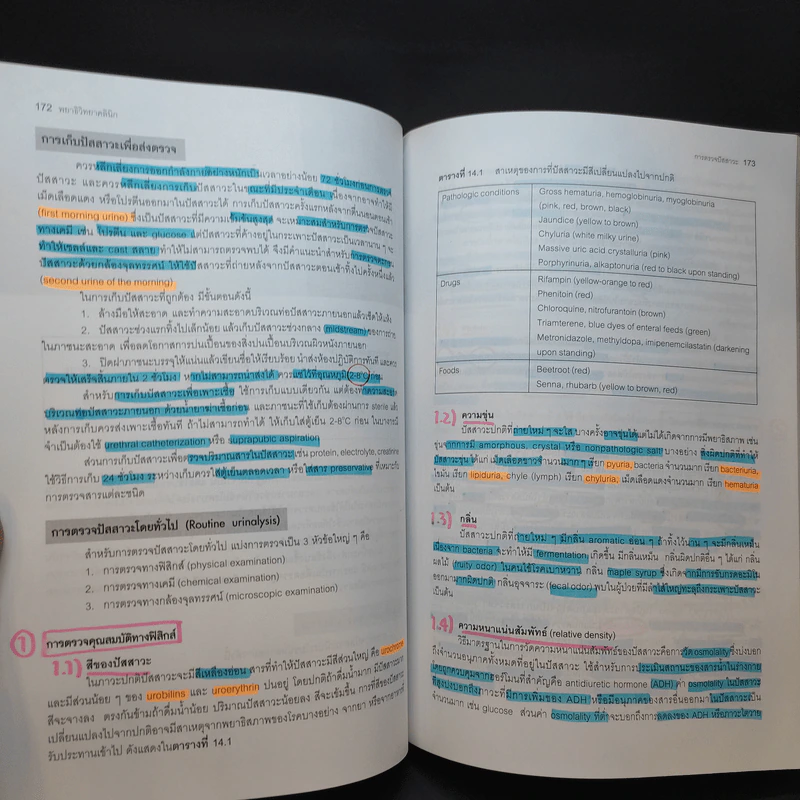 172 พยาธิวิทยาคลินิก
การเก็บปัสสาวะเพื่อส่งตรวจ
ควรหลีกเลี่ยงการออกกำลังกายอย่างหนักเป็นเวลาอย่างน้อย 72 ชั่วโมงก่อนการตรวจ
ปัสสาวะ และควรหลีกเลี่ยงการเก็บปัสสาวะในขณะที่มีประจำเดือน เนื่องจากอาจทำให้มี
เม็ดเลือดแดง หรือโปรตีนออกมาในปัสสาวะได้ การเก็บปัสสาวะครั้งแรกหลังจากตื่นนอนตอนเช้า
(first morning urine) ซึ่งเป็นปัสสาวะที่มีความเข้มข้นสูงสุด จะเหมาะสมสำหรับการตรวจปัสสาวะ
ทางเคมี เช่น โปรตีน และ glucose แต่ปัสสาวะที่ค้างอยู่ในกระเพาะปัสสาวะเป็นเวลานาน ๆ จะ
ทำให้เซลล์และ cast สลาย ทำให้ไม่สามารถตรวจพบได้ จึงมีคำแนะนำสำหรับการตรวจตะกอน
ปัสสาวะด้วยกล้องจุลทรรศน์ ให้ใช้ปัสสาวะที่ถ่ายหลังจากปัสสาวะตอนเช้าทิ้งไปครั้งหนึ่งแล้ว
(second urine of the morning)
ในการเก็บปัสสาวะที่ถูกต้อง มีขั้นตอนดังนี้
1. ล้างมือให้สะอาด และทำความสะอาดบริเวณท่อปัสสาวะภายนอกแล้วเช็ดให้แห้ง
2. ปัสสาวะช่วงแรกทิ้งไปเล็กน้อย แล้วเก็บปัสสาวะช่วงกลาง (midstream) ของการถ่าย
ในภาชนะสะอาด เพื่อลดโอกาสการปนเปื้อนของสิ่งปนเปื้อนบริเวณผิวหนังภายนอก
3. ปิดฝาภาชนะบรรจุให้แน่นแล้วเขียนชื่อให้เรียบร้อย นำส่งห้องปฏิบัติการทันที และควร
ตรวจให้เสร็จสิ้นภายใน 2 ชั่วโมง หากไม่สามารถนำส่งได้ ควรแช่ไว้ที่อุณหภูมิ 2-8°C ก่อน
สำหรับการเก็บปัสสาวะเพื่อเพาะเชื้อ ใช้การเก็บแบบเดียวกัน แต่ต้องทำความสะอาด
บริเวณท่อปัสสาวะภายนอก ด้วยน้ำยาฆ่าเชื้อก่อน และภาชนะที่ใช้เก็บต้องผ่านการ sterile แล้ว
หลังการเก็บควรส่งเพาะเชื้อทันที ถ้าไม่สามารถทำได้ ให้เก็บใส่ตู้เย็น 2-8°C ก่อน ในบางกรณี
จำเป็นต้องใช้ urethral catheterization หรือ suprapubic aspiration
ส่วนการเก็บปัสสาวะเพื่อตรวจปริมาณสารในปัสสาวะเช่น protein, electrolyte, creatinine
ใช้วิธีการเก็บ 24 ชั่วโมง ระหว่างเก็บควรใส่ตู้เย็นตลอดเวลา หรือใส่สาร preservative ที่เหมาะกับ
การตรวจสารแต่ละชนิด
การตรวจปัสสาวะโดยทั่วไป (Routine urinalysis)
สำหรับการตรวจปัสสาวะโดยทั่วไป แบ่งการตรวจเป็น 3 หัวข้อใหญ่ ๆ คือ
1. การตรวจทางฟิสิกส์ (physical examination)
2. การตรวจทางเคมี (chemical examination)
3. การตรวจทางกล้องจุลทรรศน์ (microscopic examination)
1 การตรวจคุณสมบัติทางฟิสิกส์
1.1) สีของปัสสาวะ
ในภาวะปกติปัสสาวะจะมีสีเหลืองอ่อน สารที่ทำให้ปัสสาวะมีสีส่วนใหญ่ คือ urochrome
และมีส่วนน้อย ๆ ของ urobilins และ uroerythrin ปนอยู่ โดยปกติถ้าดื่มน้ำมาก มีปัสสาวะมาก
สีจะจางลง ตรงกันข้ามถ้าดื่มน้ำน้อย ปริมาณปัสสาวะน้อยลง สีจะเข้มขึ้น การที่สีของปัสสาวะ
เปลี่ยนแปลงไปจากปกติอาจมีสาเหตุจากพยาธิสภาพของโรคบางอย่าง จากยา หรือจากอาหารที่
รับประทานเข้าไป ดังแสดงในตารางที่ 14.1
การตรวจปัสสาวะ 173
ตารางที่ 14.1 สาเหตุของการที่ปัสสาวะมีสีเปลี่ยนแปลงไปจากปกติ
Pathologic conditions Gross hematuria, hemoglobinuria, myoglobinuria
(pink, red, brown, black)
Jaundice (yellow to brown)
Chyluria (white milky urine)
Massive uric acid crystalluria (pink)
Porphyrinuria, alkaptonuria (red to black upon standing)
Drugs Rifampin (yellow-orange to red)
Phenitoin (red)
Chloroquine, nitrofurantoin (brown)
Triamterene, blue dyes of enteral feeds (green)
Metronidazole, methyldopa, imipenemcilastatin (darkening
upon standing)
Foods Beetroot (red)
Senna, rhubarb (yellow to brown, red)
1.2) ความขุ่น
ปัสสาวะปกติที่ถ่ายใหม่ ๆ จะใส บางครั้งอาจขุ่นได้แต่ไม่ได้เกิดจากการมีพยาธิสภาพ เช่น
ขุ่นจากการมี amorphous, crystal หรือ nonpathologic salt บางอย่าง สิ่งผิดปกติที่ทำให้
ปัสสาวะขุ่นได้แก่ เม็ดเลือดขาวจำนวนมาก ๆ เรียก pyuria, bacteria จำนวนมาก เรียก bacteriuria,
ไขมัน เรียก lipiduria, chyle (lymph) เรียก chyluria, เม็ดเลือดแดงจำนวนมาก เรียก hematuria
เป็นต้น
1.3) กลิ่น
ปัสสาวะปกติที่ถ่ายใหม่ ๆ มีกลิ่น aromatic อ่อน ๆ ถ้าทิ้งไว้นาน ๆ จะมีกลิ่นเหม็น
เนื่องจาก bacteria จะทำให้มี fermentation เกิดขึ้น มีกลิ่นเหม็น กลิ่นผิดปกติอื่น ๆ ได้แก่ กลิ่น
ผลไม้ (fruity odor) ในคนใช้โรคเบาหวาน กลิ่น maple syrup ซึ่งเกิดจากมีการขับกรดอะมิโน
ออกมามากผิดปกติ กลิ่นอุจจาระ (fecal odor) พบในผู้ป่วยที่มีลำไส้ใหญ่ทะลุถึงกระเพาะปัสสาวะ
เป็นต้น
1.4) ความหนาแน่นสัมพัทธ์ (relative density)
วิธีมาตรฐานในการวัดความหนาแน่นสัมพัทธ์ของปัสสาวะคือการวัด osmolality ซึ่งบ่งบอก
ถึงจำนวนอนุภาคทั้งหมดที่อยู่ในปัสสาวะ ใช้สำหรับการประเมินสถานะของสารน้ำในร่างกาย
โดยถูกควบคุมจากฮอร์โมนที่สำคัญคือ antidiuretic hormone (ADH) ค่า osmolality ในปัสสาวะ
ที่สูงบ่งบอกถึงภาวะที่มีการเพิ่มของ ADH หรือมีอนุภาคของสารอื่นออกมาในปัสสาวะเป็น
จำนวนมาก เช่น glucose ส่วนค่า osmolality ที่ต่ำจะบอกถึงการลดลงของ ADH หรือภาวะไตวาย